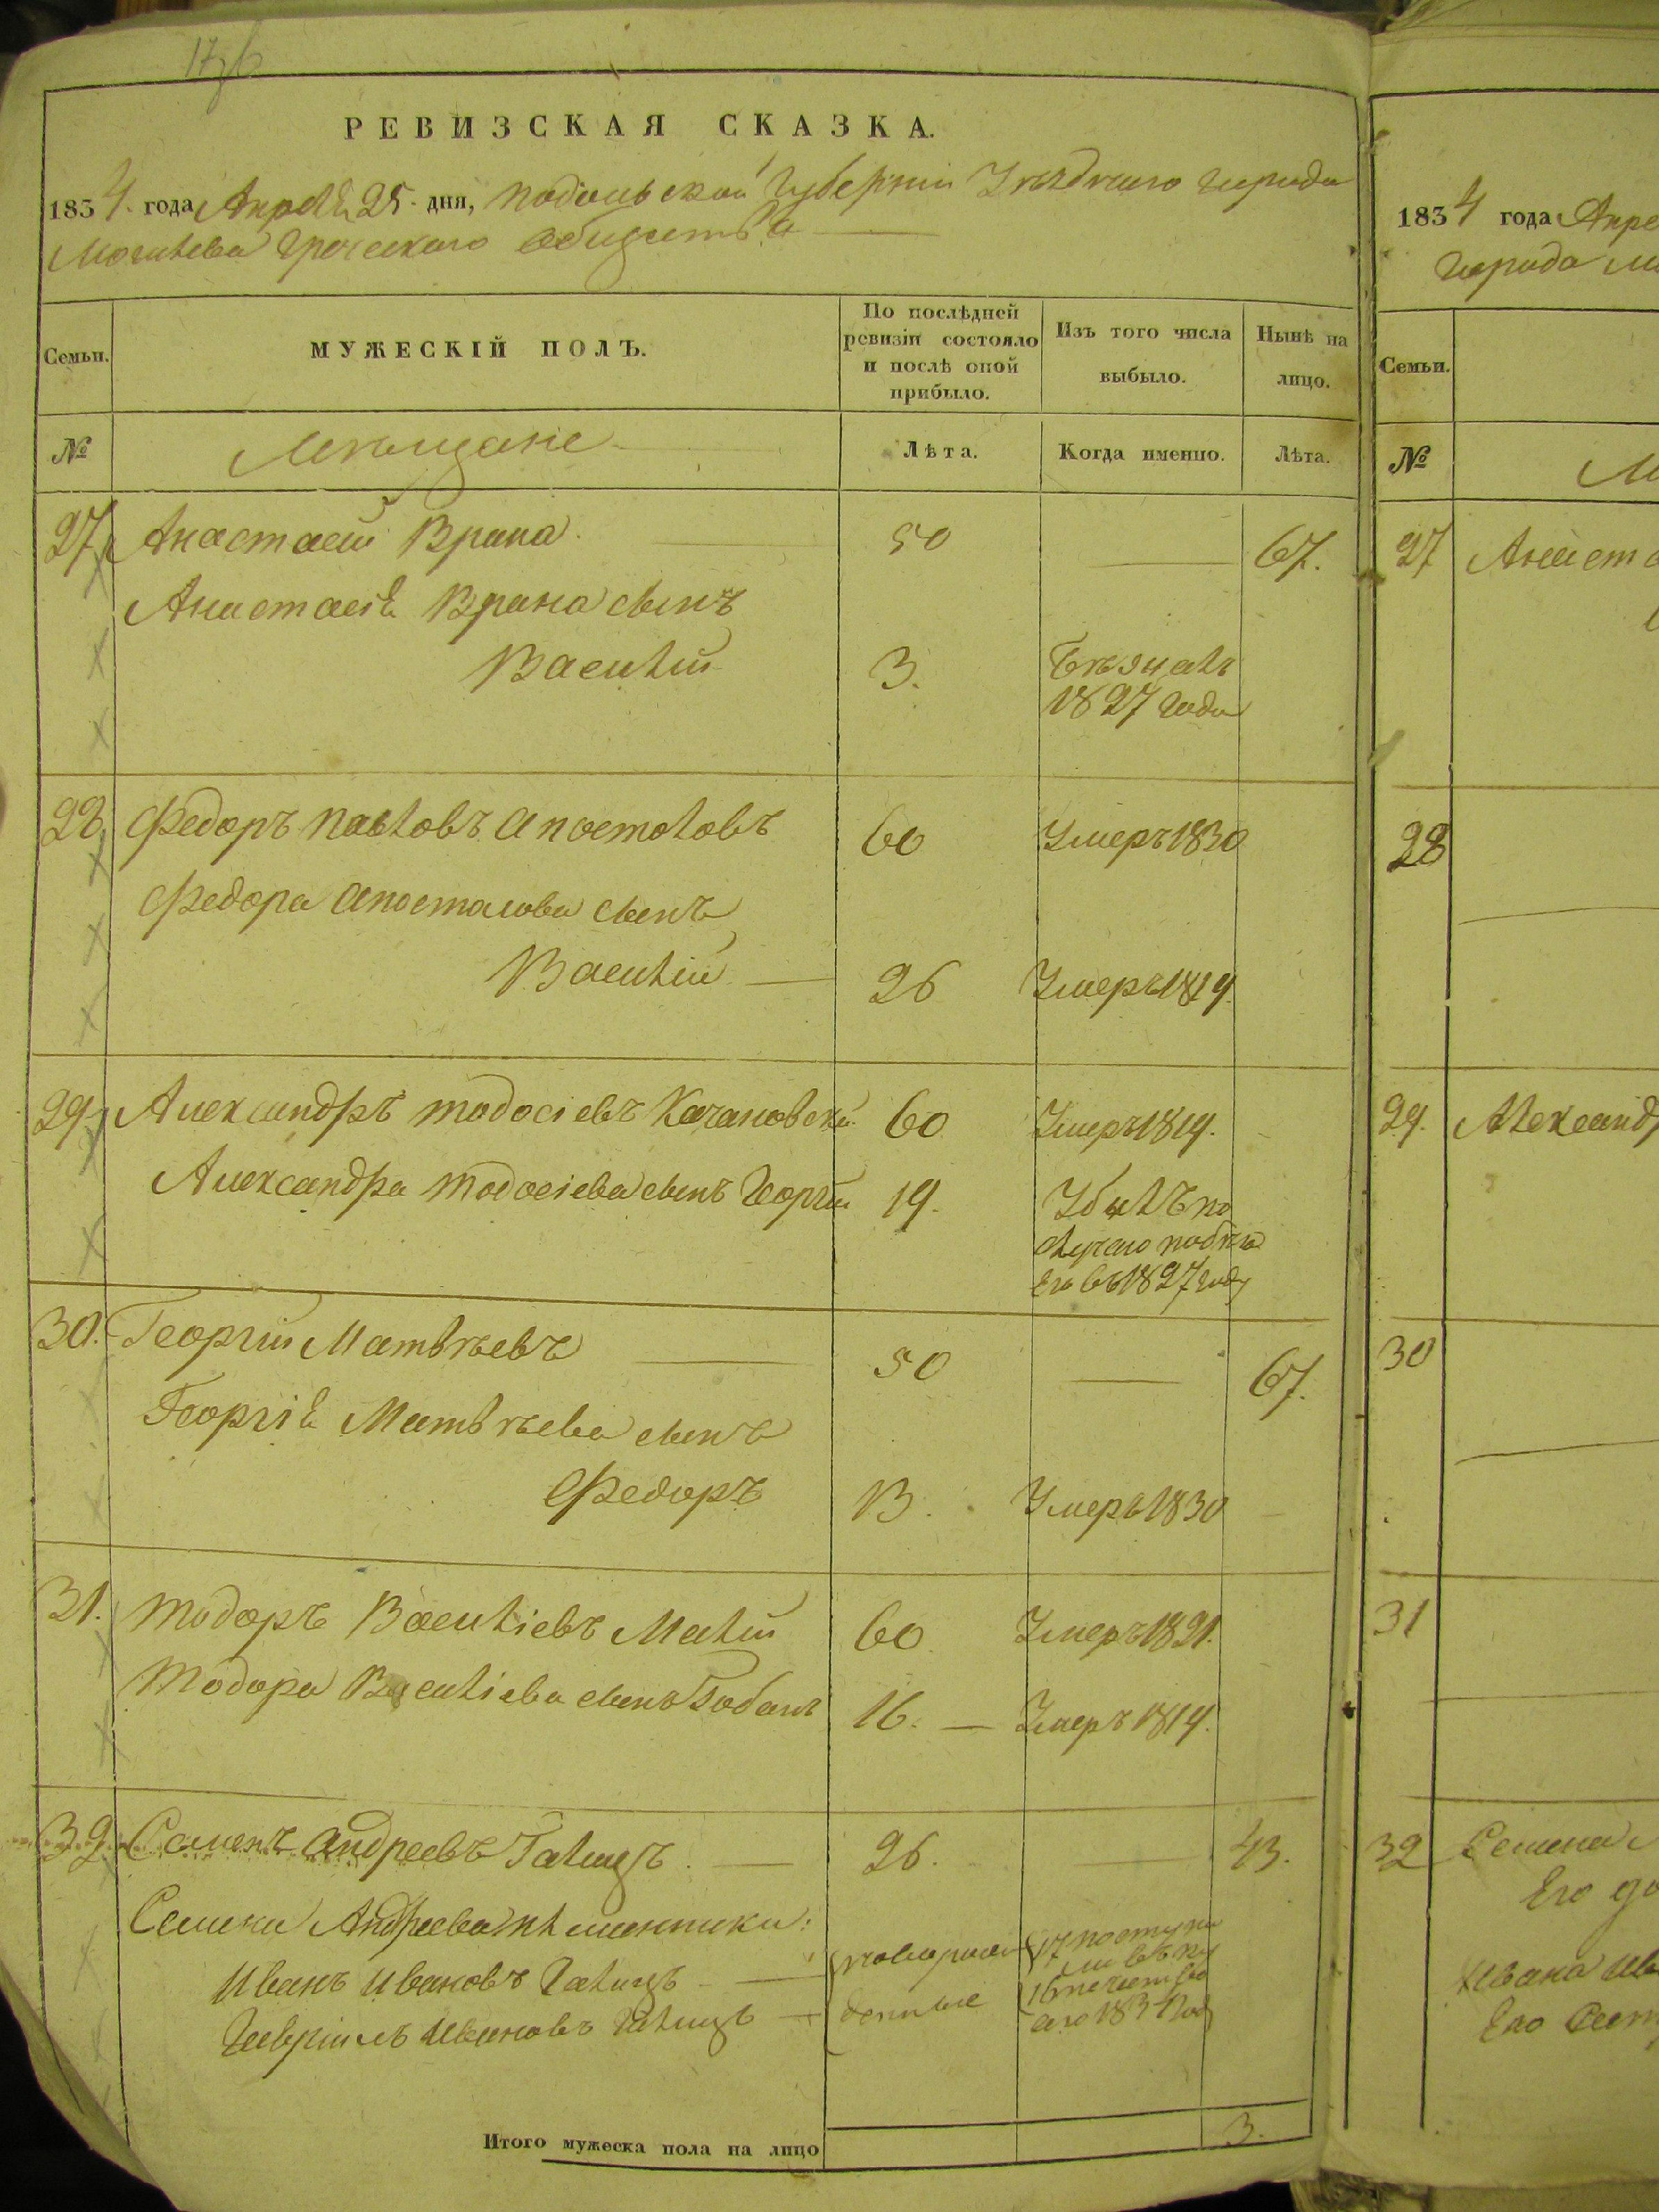 РЕВИЗСКАЯ СКАЗКА.
1834 года Апреля 25 дня, Подольской Губернiи Уѣзднаго города
Могилева Греческаго Общества
Семьи.
МУЖЕСКІЙ ПОЛЪ.
По послѣдней ревизіи состояло и послѣ оной прибыло.
Изъ того числа выбыло.
Нынѣ на лицо.
№
Мѣщане
Лѣта.
Когда именно.
Лѣта.
27 Анастасій Врана 50 — 67.
Анастасія Врана сынъ
Василій 3. Бѣжалъ
1827 года
28. Федоръ Павловъ Апостоловъ 60 Умеръ 1830
Федора Апостолова сынъ
Василій — 26 Умеръ 1819
29. Александръ Тодосіевъ Качановскій 60 Умеръ 1819.
Александра Тодосіева сынъ Георгій 19. Убылъ по
случаю побѣга
его въ 1827 году
30. Георгій Матвѣевъ — 50 — 67.
Георгія Матвѣева сынъ
Федоръ 13. Умеръ 1830
31. Тодоръ Василіевъ Малій 60 Умеръ 1821.
Тодора Василіева сынъ 16. — Умеръ 1819.
32. Семенъ Андреевъ Галицъ. — 26. — 43.
Семена Андреева племянники:
Иванъ Ивановъ Галицъ — 17
Гавріилъ Ивановъ Галицъ — 16
1834 году
Итого мужеска пола на лицо 3.
1834 года Апре
города
Семьи.
№
27
28
29. Александ
30
31
32 Семена
Его
Ивана
Его